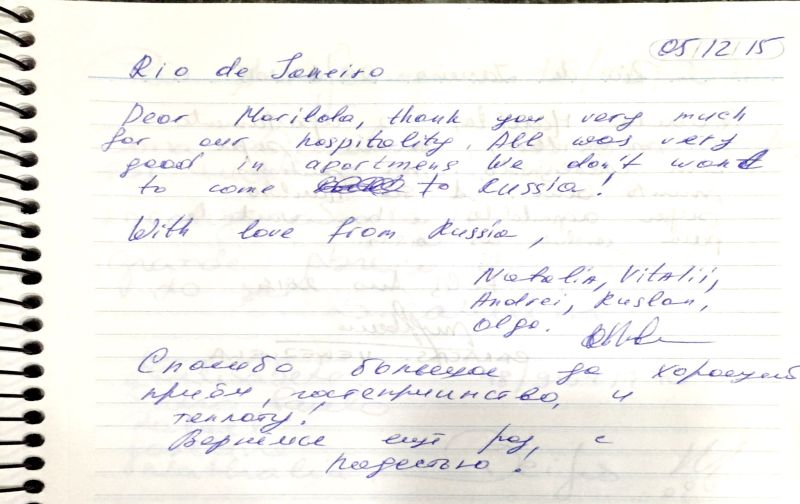 05/12/15
Rio de Janeiro
Dear Marilola, thank you very much
for our hospitality. All was very
good in apartmens We don't want
to come to Russia!
With love from Russia,
Natalia, Vitalii,
Andrei, Ruslan,
Olga.
Спасибо большое за хороший
приём, гостеприимство, и
теплоту!
Вернёмся ещё раз, с
радостью!